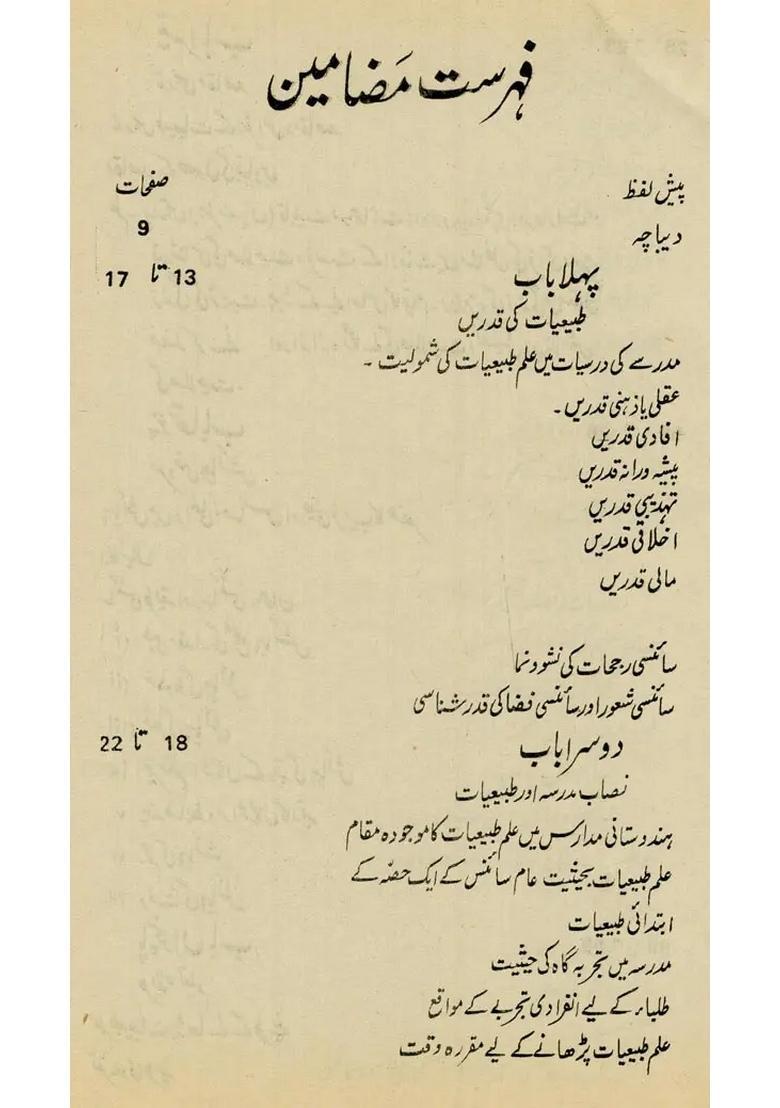 فہرست مَضامین
پیش لفظ صفحات
دیباچہ 9
پہلا باب 13 تا 17
طبیعیات کی قدریں
مدرسے کی درسیات میں علم طبیعیات کی شمولیت ۔
عقلی یا ذہنی قدریں ۔
افادی قدریں
پیشہ ورانہ قدریں
تہذیبی قدریں
اخلاقی قدریں
مالی قدریں
سائنسی رجحات کی نشوونما
سائنسی شعور اور سائنسی فضا کی قدر شناسی
دوسرا باب 18 تا 22
نصاب مدرسہ اور طبیعیات
ہندوستانی مدارس میں علم طبیعیات کا موجودہ مقام
علم طبیعیات بحیثیت عام سائنس کے ایک حصّہ کے
ابتدائی طبیعیات
مدرسہ میں تجربہ گاہ کی حیثیت
طلباء کے لیے انفرادی تجربے کے مواقع
علم طبیعیات پڑھانے کے لیے مقررہ وقت